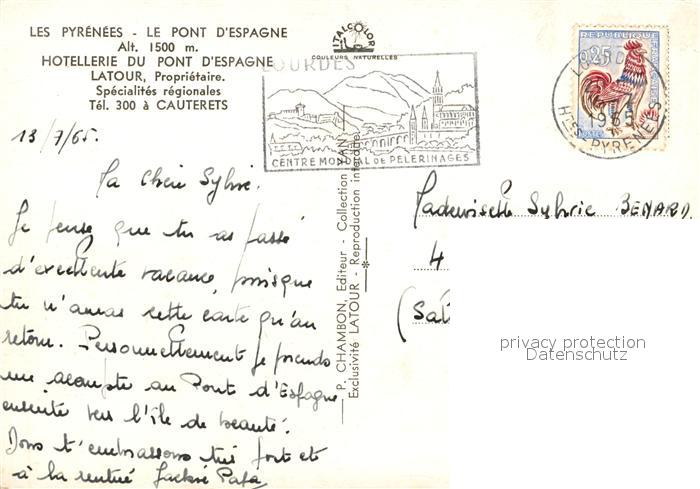 LES PYRÉNÉES - LE PONT D'ESPAGNE
Alt. 1500 m.
HOTELLERIE DU PONT D'ESPAGNE
LATOUR, Propriétaire.
Spécialités régionales
Tél. 300 à CAUTERETS
ITALCOLOR
COULEURS NATURELLES
LOURDES
CENTRE MONDIAL DE PELERINAGES
REPUBLIQUE FRANÇAISE
0,25
POSTES
1965
HTES PYRENEES
P. CHAMBON, Editeur - Collection YAN
Exclusivité LATOUR - Reproduction interdite
13/7/65.
Ma Chère Sylvie.
Je pense que tu as passé
d'excellente vacance, puisque
tu n'auras cette carte qu'au
retour. Personnellement je prends
une acompte au Pont d'Espagne
ensuite vers l'île de beauté.
Nous t'embrassons très fort et
à la rentrée Papa
Mademoiselle Sylvie BENARD
4
(Sat
privacy protection
Datenschutz